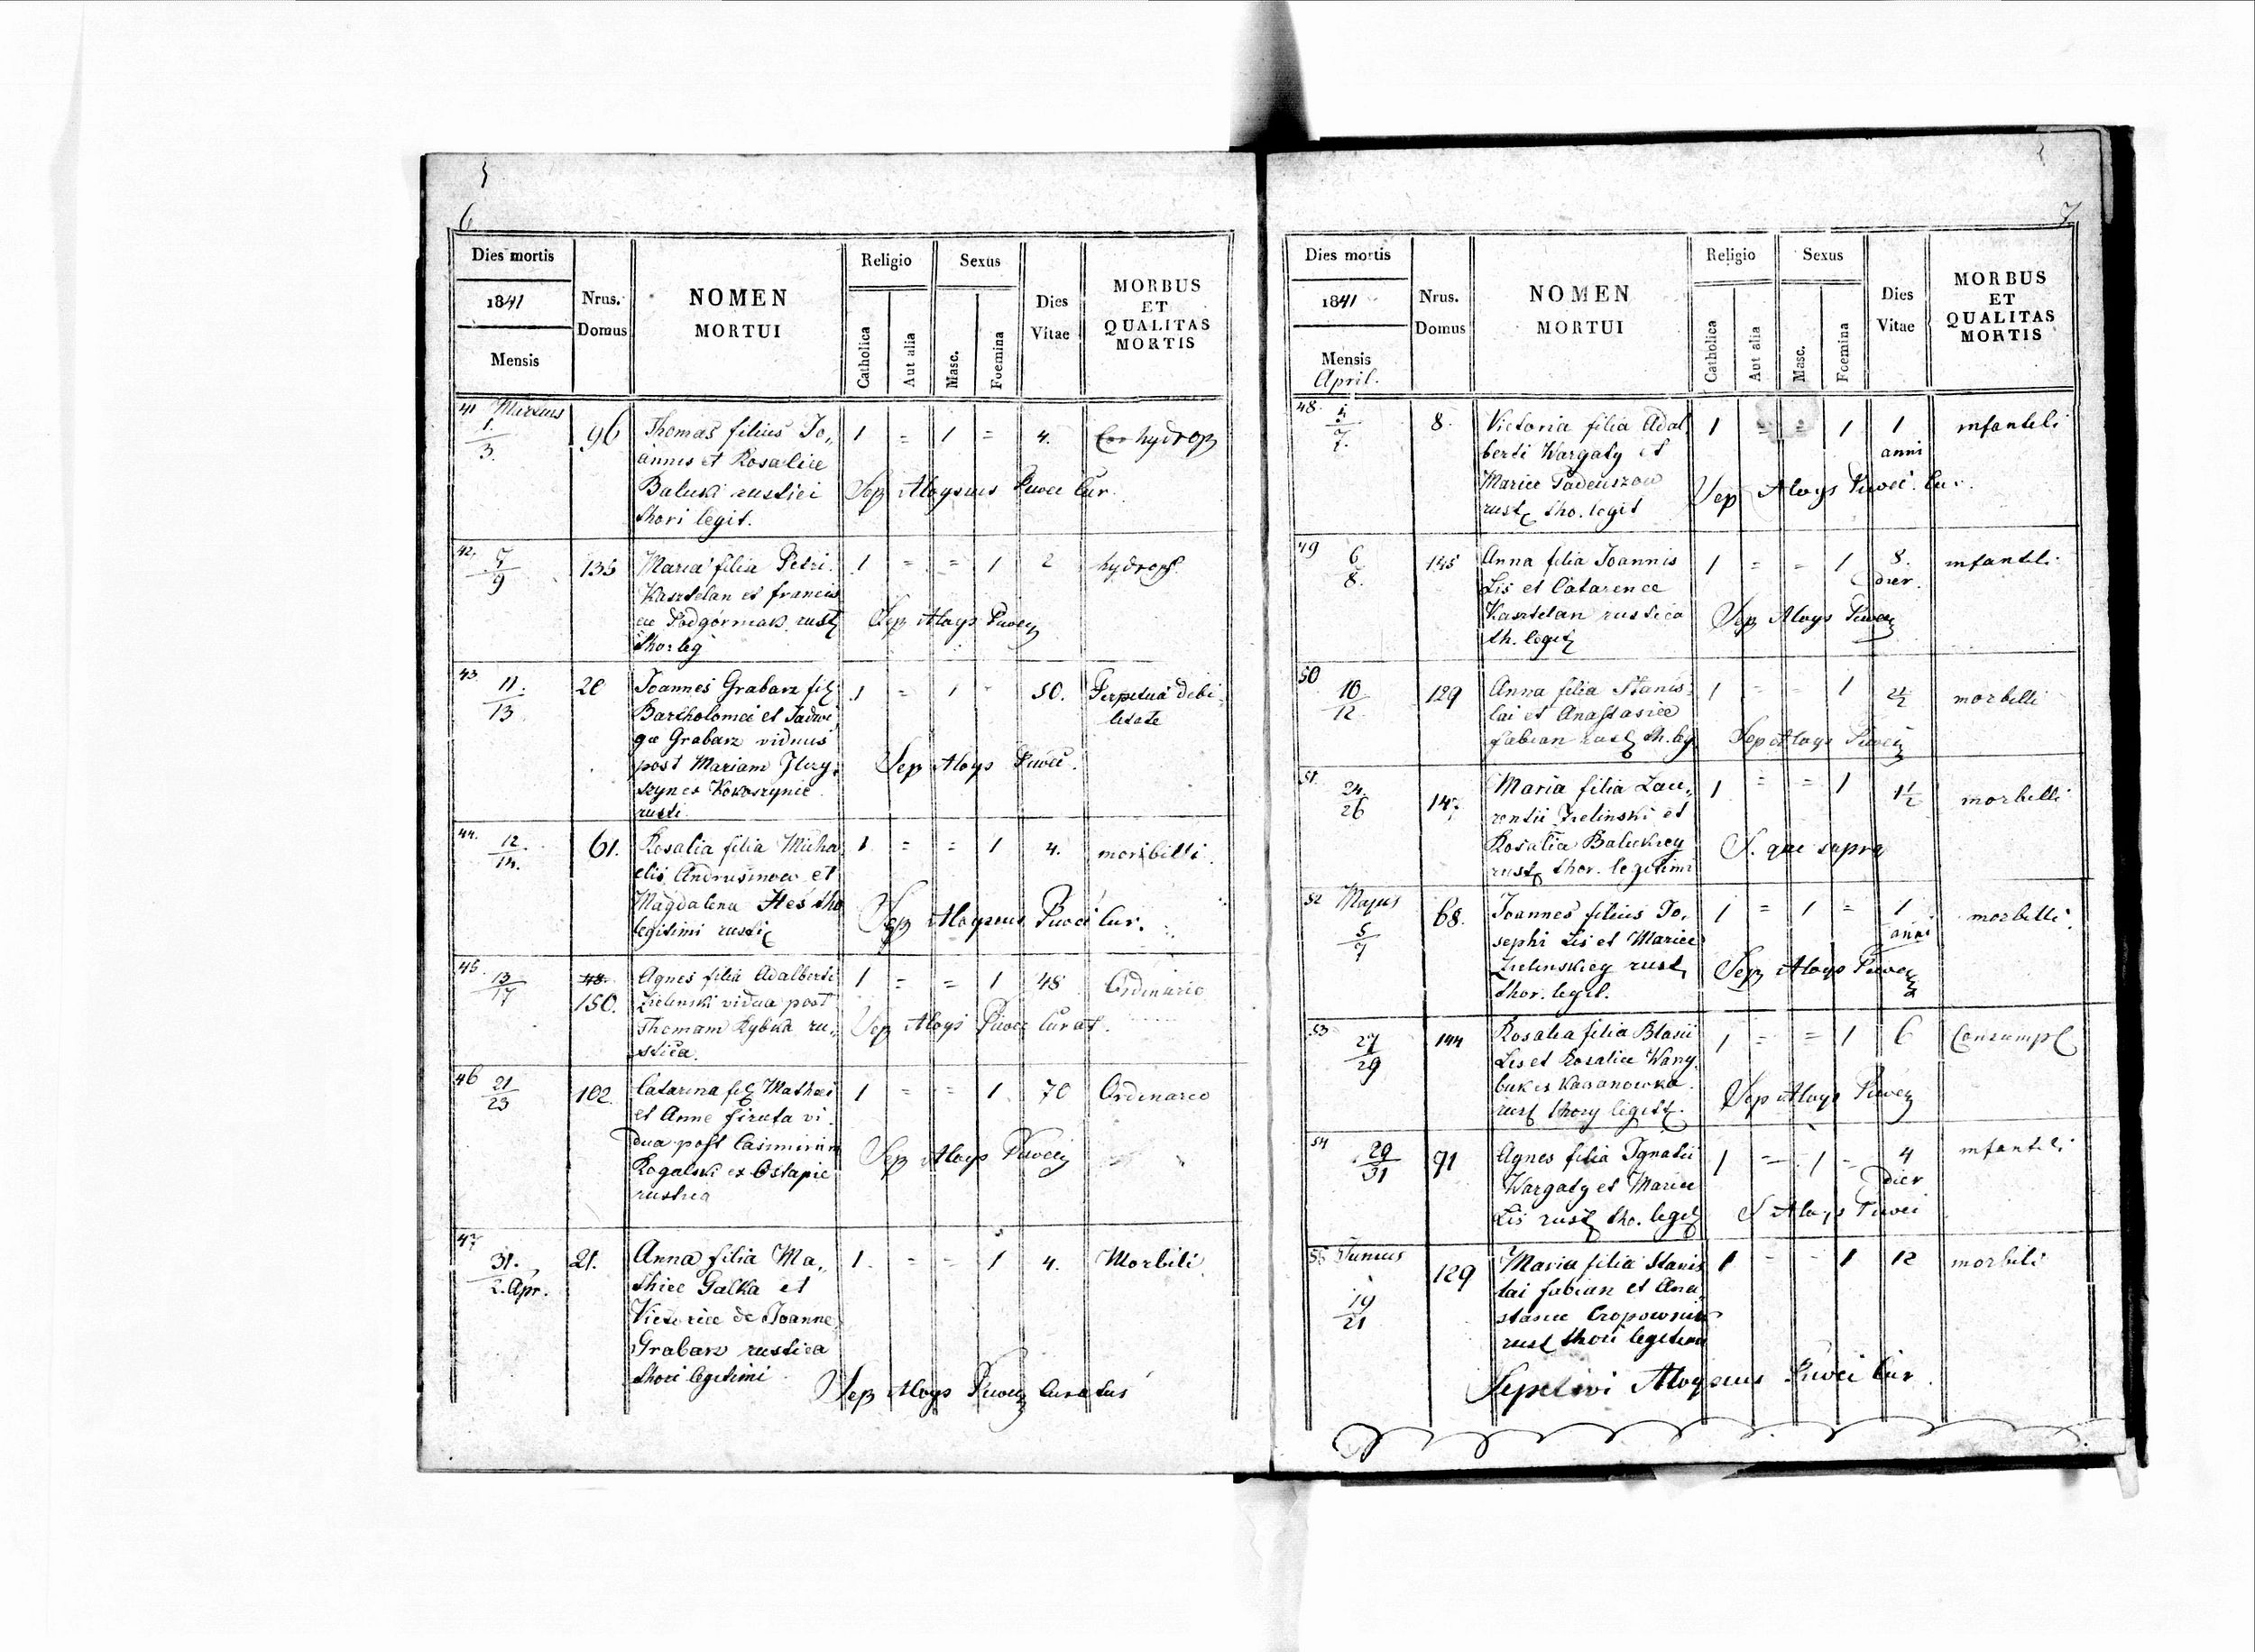 6
Dies mortis
1841
Mensis
Nrus.
Domus
NOMEN
MORTUI
Religio
Catholica
Aut alia
Sexus
Masc.
Foemina
Dies
Vitae
MORBUS
ET
QUALITAS
MORTIS
41 Martius
1. 3.
96
Thomas filius Jo,,
annis et Rosaliae
Baluki rustici
thori legit.
1 = 1 = 4. hydrop
Sep Aloysius Piwei Cur.
42. 7 9
135
Maria filia Petri
Kasztelan et francis
ae Podgórniak rust
thor leg
1 = = 1 2 hydrops
Sep Aloys Piwei
43. 11. 13
20
Joannes Grabarz fil
Bartholomei et Jadwi
gæ Grabarz viduus
post Mariam
Kokoszynie
rusti.
1 = 1 - 50. Perpetua debi
litate
Sep Aloys Piwei.
44. 12. 14.
61.
Rosalia filia Micha
elis Andrusinow et
Magdalena Hes tho
legitimi rusti
1 = = 1 4. moribilli.
Sep Aloysius Piwei Cur.
45. 13 17
48.
150.
Agnes filia Adalberti
Zielenski vidua post
Thomam Rybka ru,,
stica.
1 = = 1 48 Ordinario
Sep Aloys Piwei Curat.
46 21 23
102.
Catarina fil Mathæi
et Anne firuta vi
dua post Casimirum
Rogalski ex Ostapie
rustica
1 = = 1. 70 Ordinario
Sep Aloys Piwei
47 31. 2. Apr.
21.
Anna filia Ma,,
thiæ Galka et
Victoriæ de Joanne
Grabarz rustica
thori legitimi.
1. - - 1 4. Morbili
Sep Aloys Piwei Curatus
7
Dies mortis
1841
Mensis
April.
Nrus.
Domus
NOMEN
MORTUI
Religio
Catholica
Aut alia
Sexus
Masc.
Foemina
Dies
Vitae
MORBUS
ET
QUALITAS
MORTIS
48. 5 7.
8.
Victoria filia Adal,
berti Wargaty et
Mariæ Tadeuszow
rust tho. legit
1 = = 1 1 infantili
anni
Sep Aloys Piwei Cur.
49 6 8.
145
Anna filia Joannis
Lis et Catarence
Kasztelan rustica
th. legit
1 = = 1 8. infantili
dier.
Sep Aloys Piwei
50 10 12
129
Anna filia Stanis
lai et Anastasiæ
fabian rust th. leg
1 = = 1 2½ morbilli
Sep Aloys Piwei
51. 24. 26
147
Maria filia Lau,,
rentii Zielinski et
Rosalia Baluckiey
rust thor. legitimi
1 = = 1 1½ morbilli
S. que supra
52 Majus
5 7
68.
Joannes filius Jo,
sephi Lis et Mariæ
Zielinskiey rust,
thor. legit.
1 = 1 = 1 morbilli
anni
Sep Aloys Piwei
53 27 29
144
Rosalia filia Blasii
Lis et Rosaliæ Wary
buk
rust thory legit.
1 = = 1 6 Consumpt
Sep Aloys Piwei
54 29 31
91
Agnes filia Ignatii
Wargaty et Mariæ
Lis rust tho. legit
1 - 1 - 4 infantili
dier
S Aloys Piwei
55 Junius
19 21
129
Maria filia Stanis
lai fabian et Ana,
stasiæ Cropownicka
rust thori legitimi
1 - - 1 12 morbili
Sepelivi Aloysius Piwei Cur.